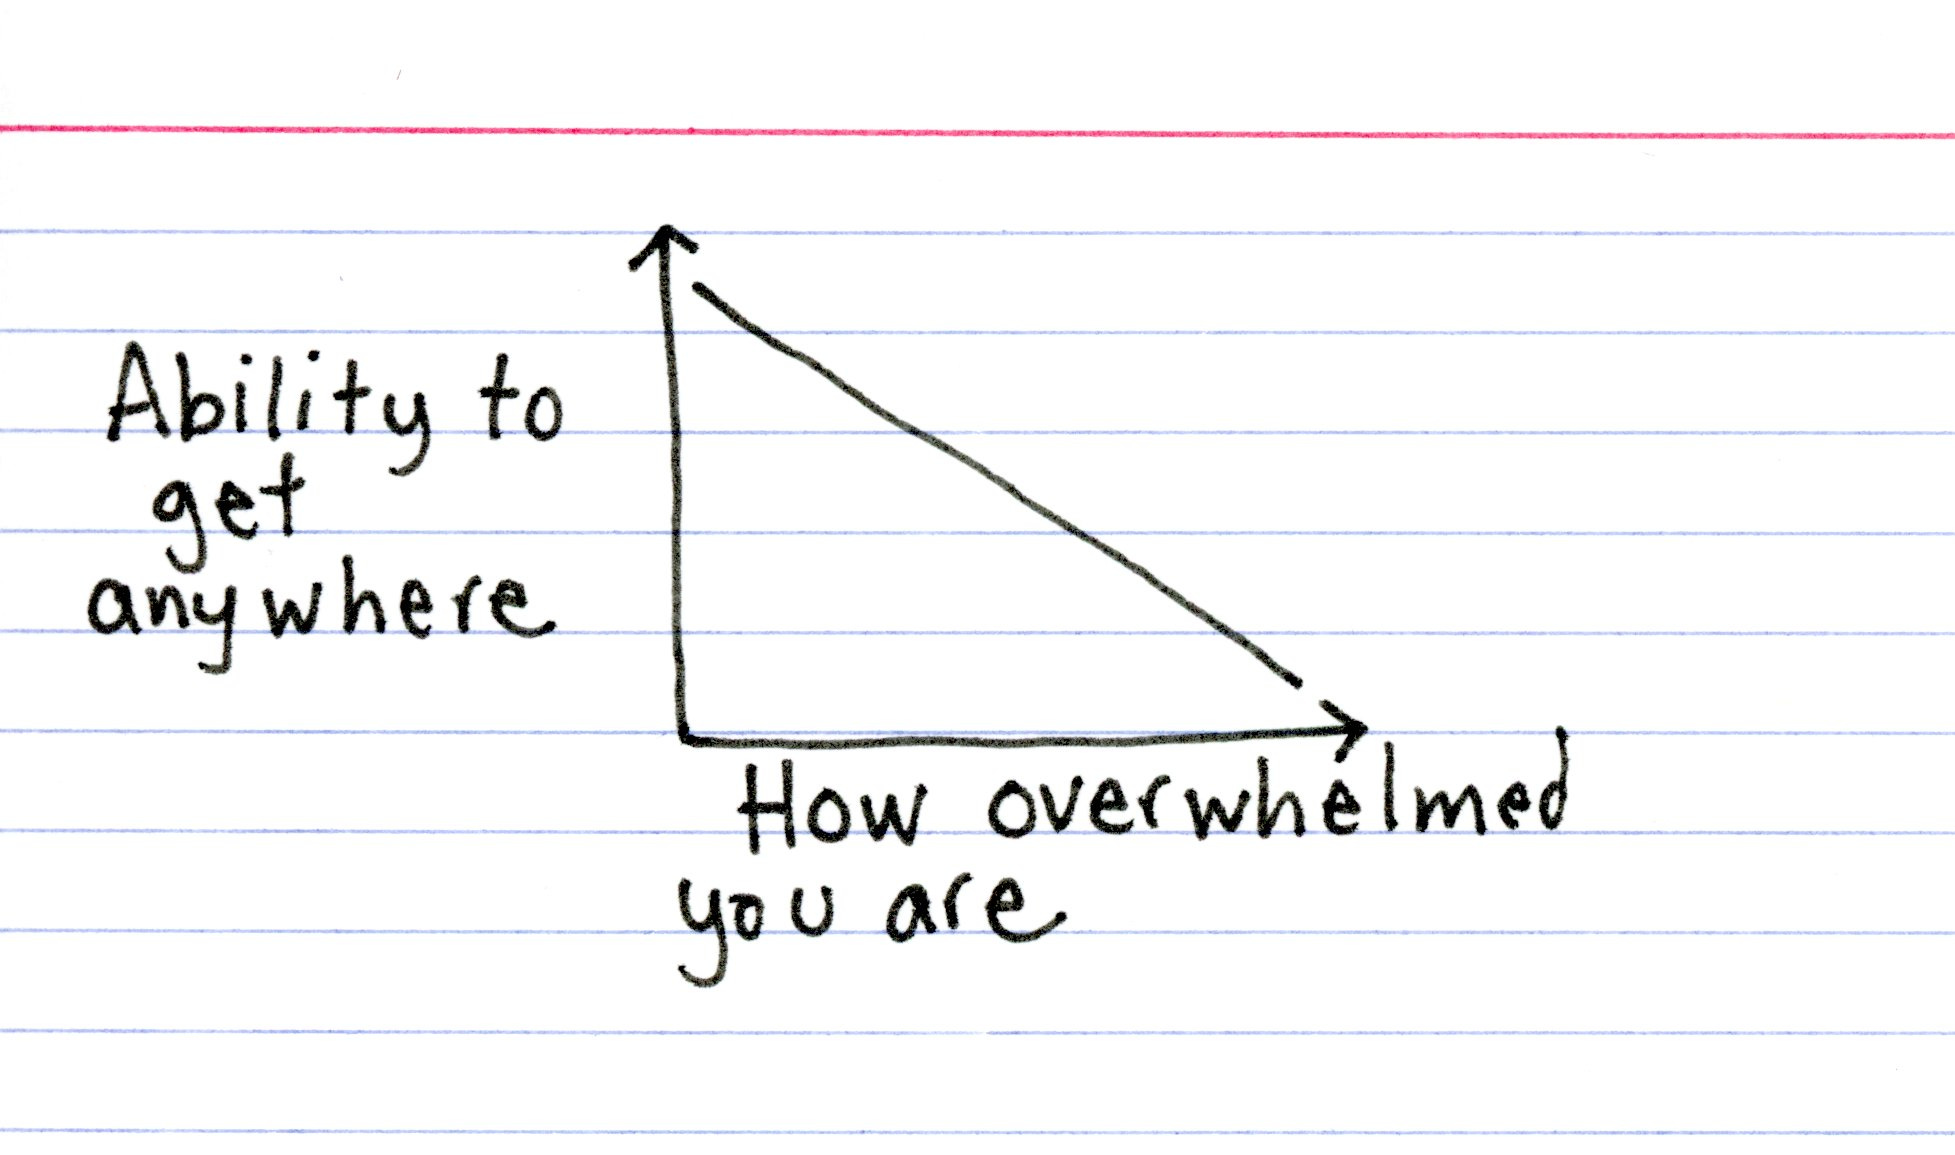 Ability to
get
anywhere
How overwhelmed
you are